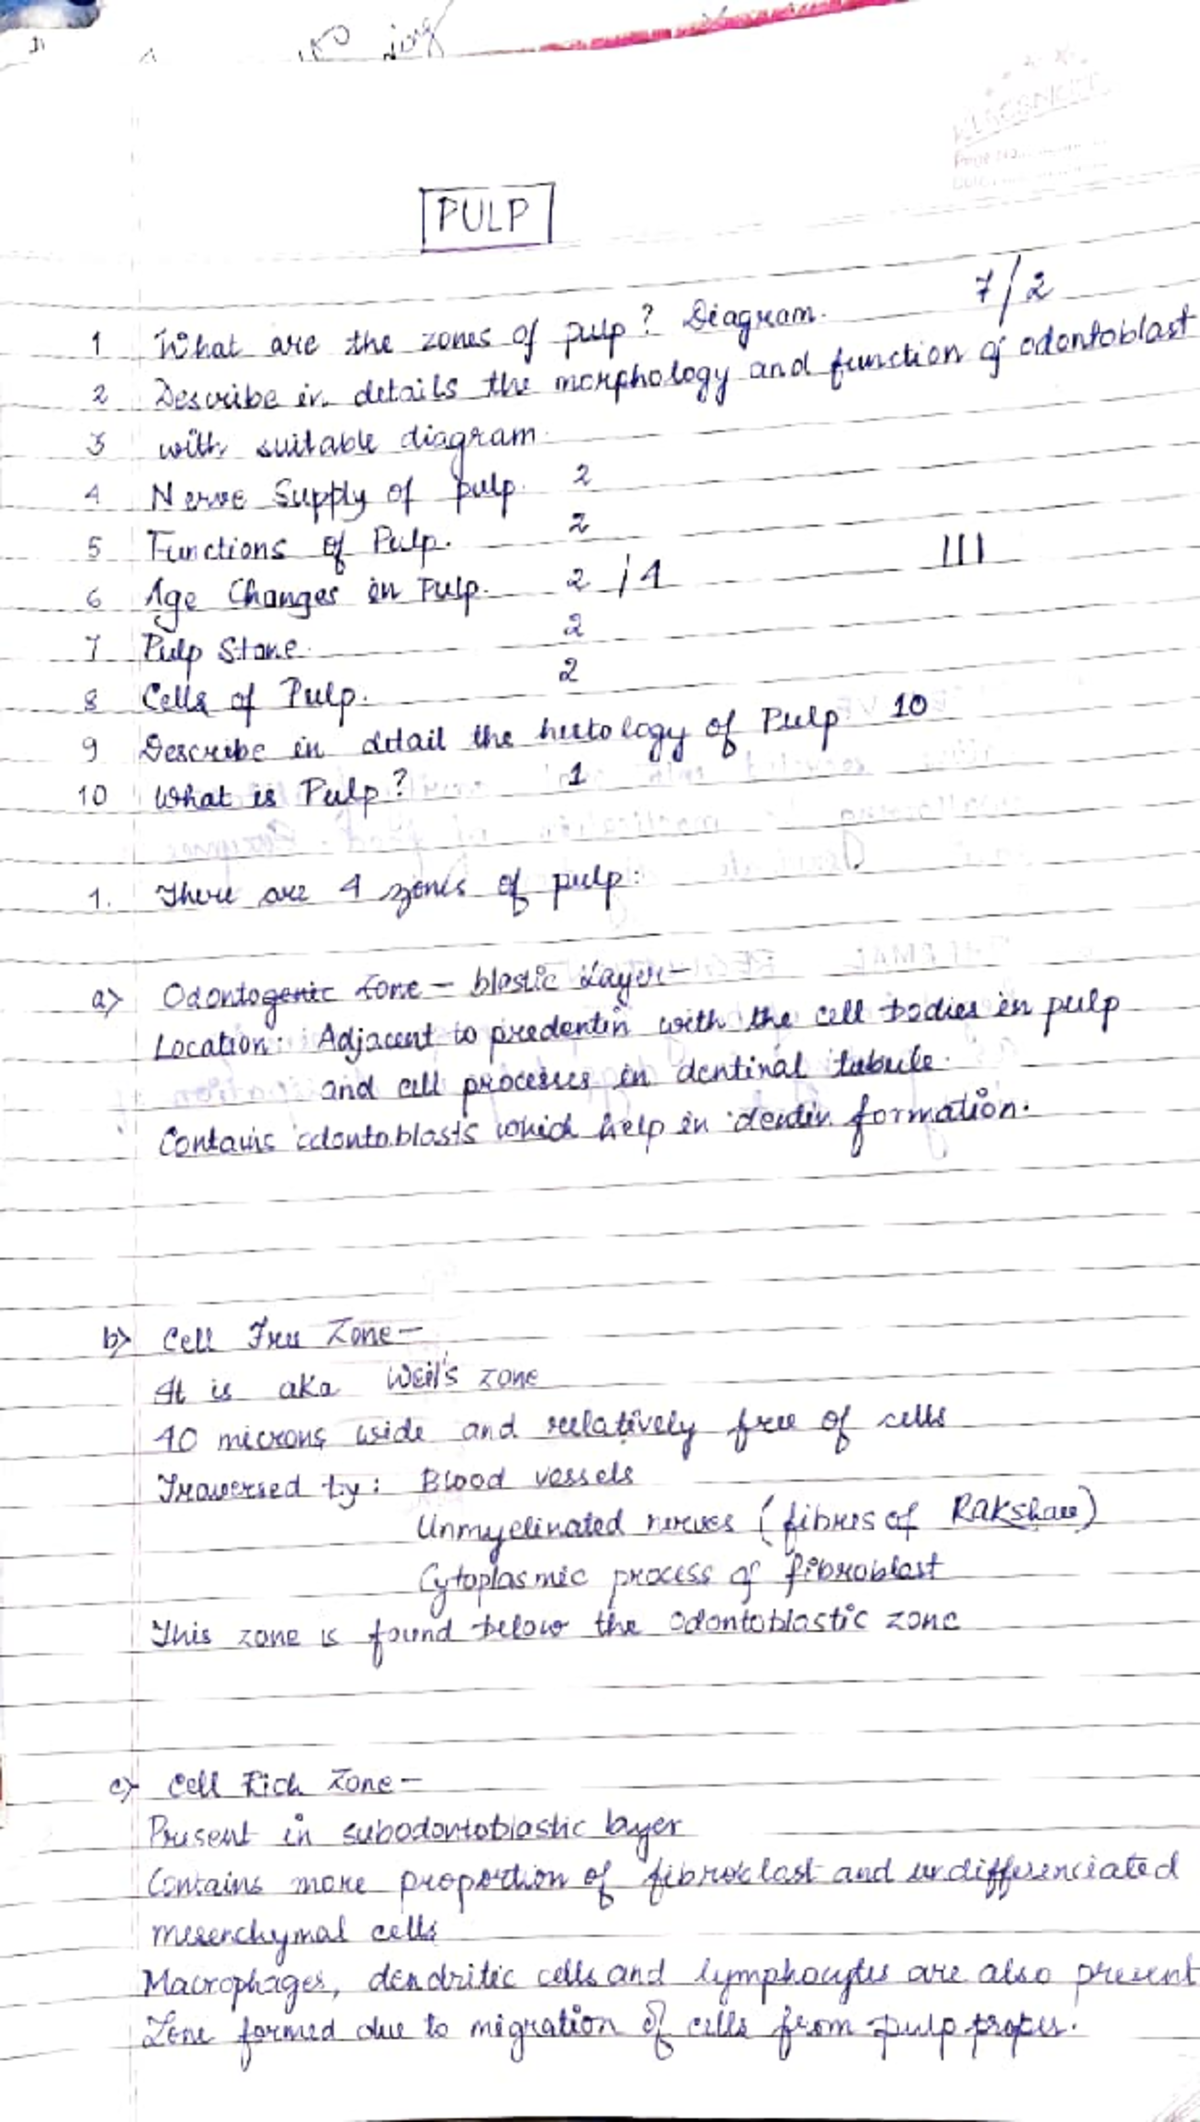 PULP
7/2
1 What are the zones of pulp? Diagram.
2 Describe in details the morphology and function of odontoblast
3 with suitable diagram.
4 Nerve Supply of pulp. 2
5 Functions of Pulp. 2
6 Age Changes in Pulp. 2/4 III
7 Pulp Stone. 2
8 Cells of Pulp. 2
9 Describe in detail the histology of Pulp 10
10 What is Pulp? 1
1. There are 4 zones of pulp:
a) Odontogenic Zone - blastic Layer-
Location: Adjacent to predentin with the cell bodies in pulp
and cell processes in dentinal tubule.
Contains odontoblasts which help in dentin formation.
b) Cell Free Zone -
It is aka Weil's zone
40 microns wide and relatively free of cells
Traversed by: Blood vessels
Unmyelinated nerves (fibres of Rakshaw)
Cytoplasmic process of fibroblast
This zone is found below the odontoblastic zone
c) Cell Rich Zone -
Present in subodontoblastic layer
Contains more proportion of fibroblast and undifferenciated
mesenchymal cells
Macrophages, dendritic cells and lymphocytes are also present
Zone formed due to migration of cells from pulp proper.